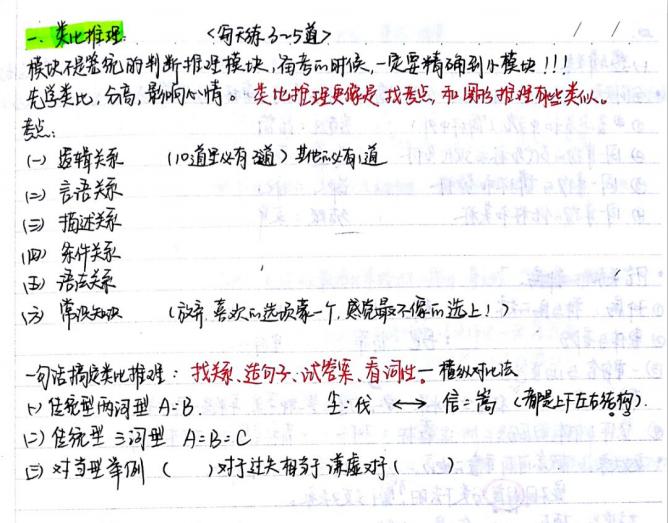 一. 类比推理: <每天练3~5道>
模块不是笼统的判断推理模块,备考的时候,一定要精确到小模块!!!
先学类比,分高,影响心情。类比推理更像是找考点,和图形推理有些类似。
考点:
(一) 逻辑关系 (10道里必有 道) 其他必有1道
(二) 言语关系
(三) 描述关系
(四) 条件关系
(五) 语法关系
(六) 常识知识 (放弃,喜欢的选项蒙一个,感觉最不像的选上!)
一句话搞定类比推理: 找关系、造句子、试答案、看词性。— 横纵对比法
(一) 传统型两词型 A=B. 尘:伐 ←→ 信:嵩 (都是上下左右结构).
(二) 传统型 三词型 A=B=C
(三) 对当型举例 ( )对于过失相当于 谦虚对于( )